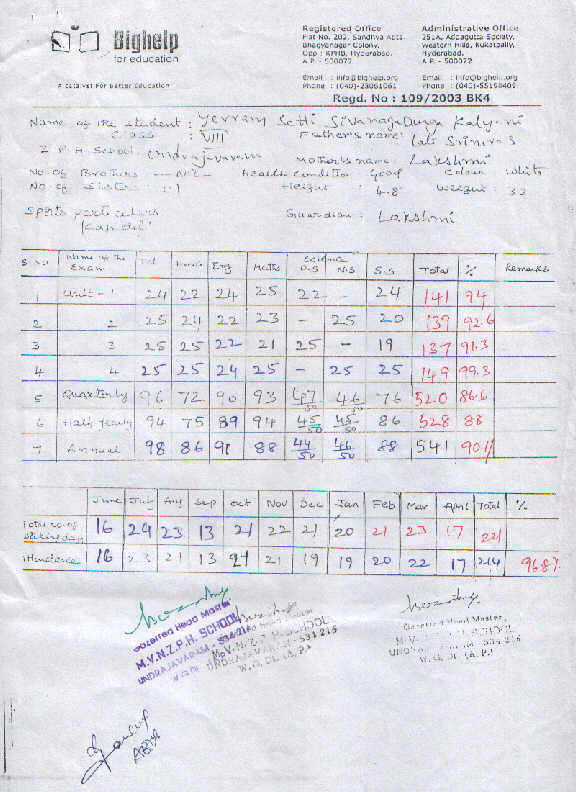 Bighelp
for education
A catalyst For Better Education
Registered Office
Flat No. 202, Sandhya Apts.
Bhagyanagar Colony,
Opp : KPHB, Hyderabad.
A.P - 500072
Email : info@bighelp.org
Phone : (040)-23061061
Administrative Office
251A, Addagutta Society,
Western Hills, Kukatpally,
Hyderabad.
A.P - 500072
Email : info@bighelp.org
Phone : (040)-55198409
Regd. No : 109/2003 BK4
Name of the student : Yerram Setti Sivanaga Durga Kalyani
Class : VIII Father's name: Late Srinivas
Z P H School, Undrajavaram Mother's name: Lakshmi
No. of Brothers -- Nil - Health condition : Good Colour : White
No. of Sisters : 1 Height : 4.8 Weight : 32
Sports particulars Guardian : Lakshmi
S.No Name of the Exam Tel Hindi Eng Maths Science P.S N.S S.S Total % Remarks
1 Unit - 1 24 22 24 25 22 - 24 141 94
2 2 25 24 22 23 - 25 20 139 92.6
3 3 25 25 22 21 25 - 19 137 91.3
4 4 25 25 24 25 - 25 25 149 99.3
5 Quarterly 96 72 90 93 47/50 46/50 76 520 86.6
6 Half yearly 94 75 89 94 45/50 45/50 86 528 88
7 Annual 98 86 91 88 44/50 46/50 88 541 90%
June July Aug Sep Oct Nov Dec Jan Feb Mar April Total %
Total no. of working days 16 24 23 13 21 22 21 20 21 23 17 221
Attendence 16 23 21 13 21 21 19 19 20 22 17 214 96.8%
Gazetted Head Master
M.V.N.Z.P.H. SCHOOL
UNDRAJAVARAM - 534 216
W.G. Dt.
M.V.N.Z.P.H. SCHOOL
UNDRAJAVARAM - 534 216
W.G. Dt. (A.P.)
Gazetted Head Master
M.V.N.Z.P.H. SCHOOL
UNDRAJAVARAM - 534 216
W.G. Dt. (A.P.)